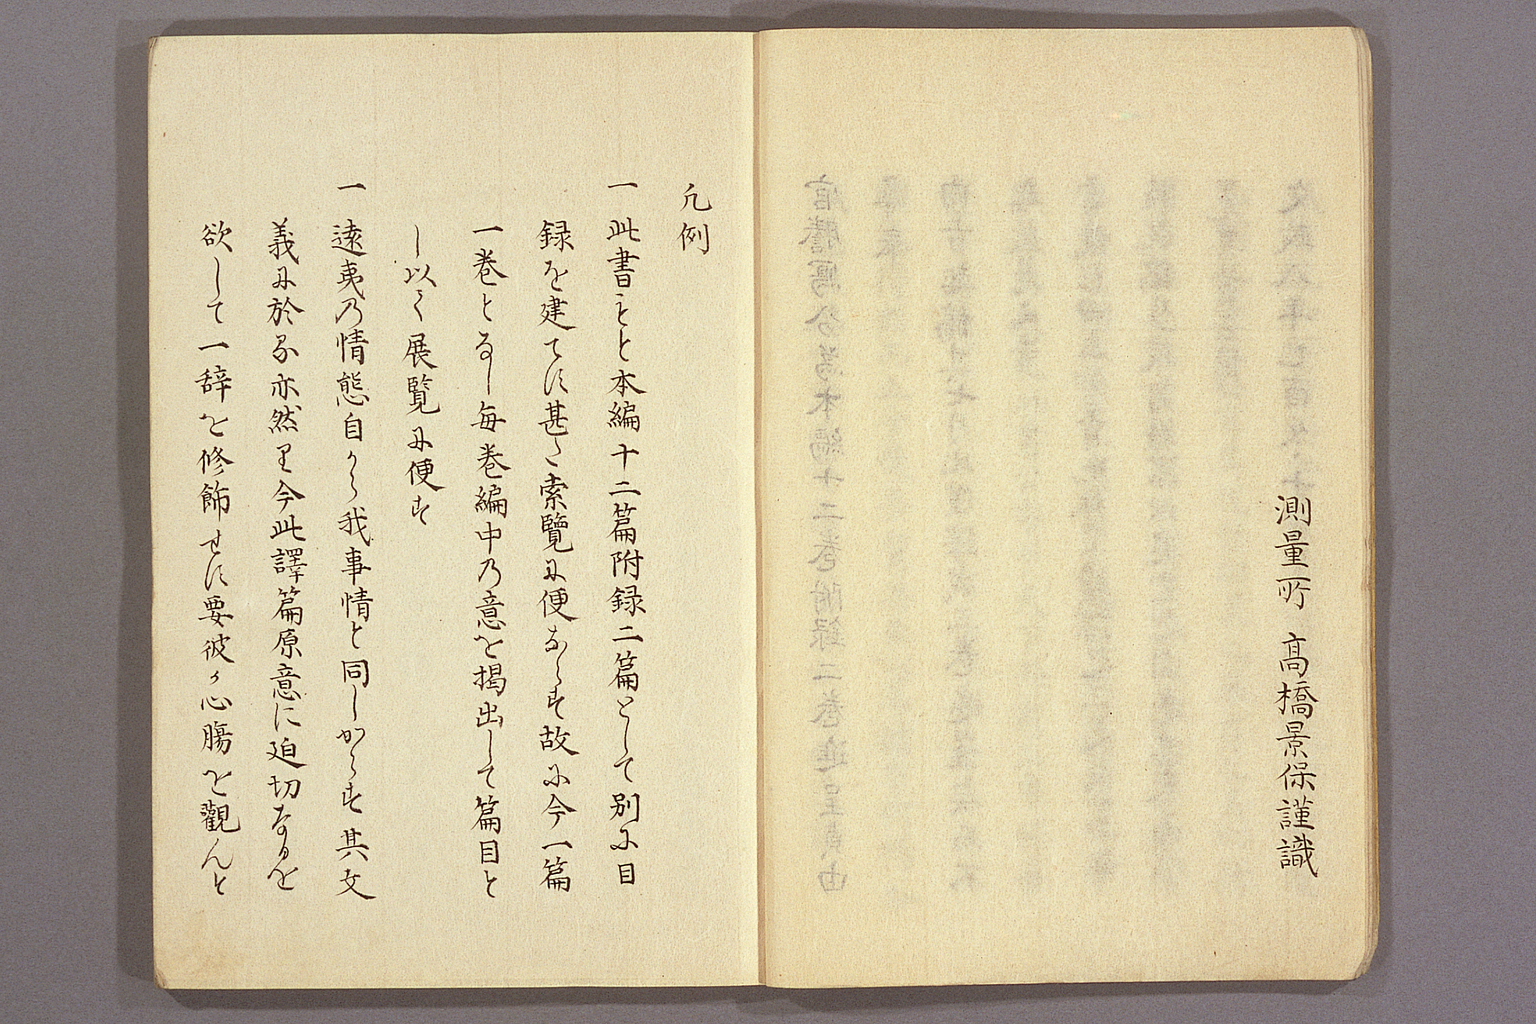 測量所 高橋景保謹識
凡例
一 此書もと本編十二篇附録二篇として別に目
録を建てす甚た索覧に便ならす故に今一篇
一巻となし毎巻編中乃意を掲出して篇目と
し以て展覧に便す
一 遠夷乃情態自から我事情と同しからす其文
義に於る亦然り今此譯篇原意に迫切なるを
欲して一辞を修飾せす要彼か心膓を觀んと